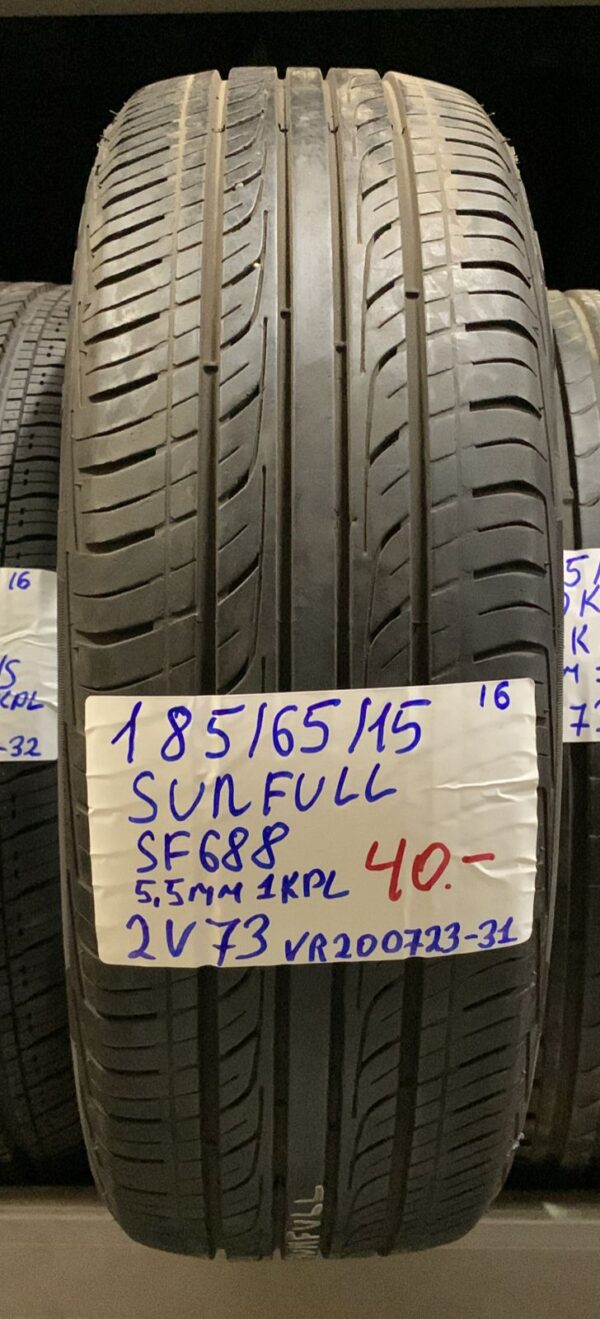 16
185/65/15
SUNFULL
SF688
40.-
5.5MM 1KPL
2V73 VR200723-31
SUNFULL
16
KPL
-32